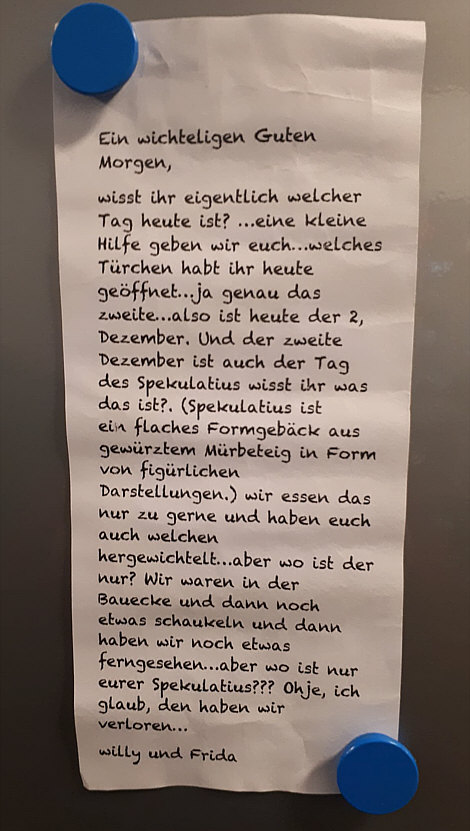 Ein wichteligen Guten
Morgen,
wisst ihr eigentlich welcher
Tag heute ist? ...eine kleine
Hilfe geben wir euch...welches
Türchen habt ihr heute
geöffnet...ja genau das
zweite...also ist heute der 2,
Dezember. Und der zweite
Dezember ist auch der Tag
des Spekulatius wisst ihr was
das ist?. (Spekulatius ist
ein flaches Formgebäck aus
gewürztem Mürbeteig in Form
von figürlichen
Darstellungen.) wir essen das
nur zu gerne und haben euch
auch welchen
hergewichtelt...aber wo ist der
nur? Wir waren in der
Bauecke und dann noch
etwas schaukeln und dann
haben wir noch etwas
ferngesehen...aber wo ist nur
eurer Spekulatius??? Ohje, ich
glaub, den haben wir
verloren...
willy und Frida